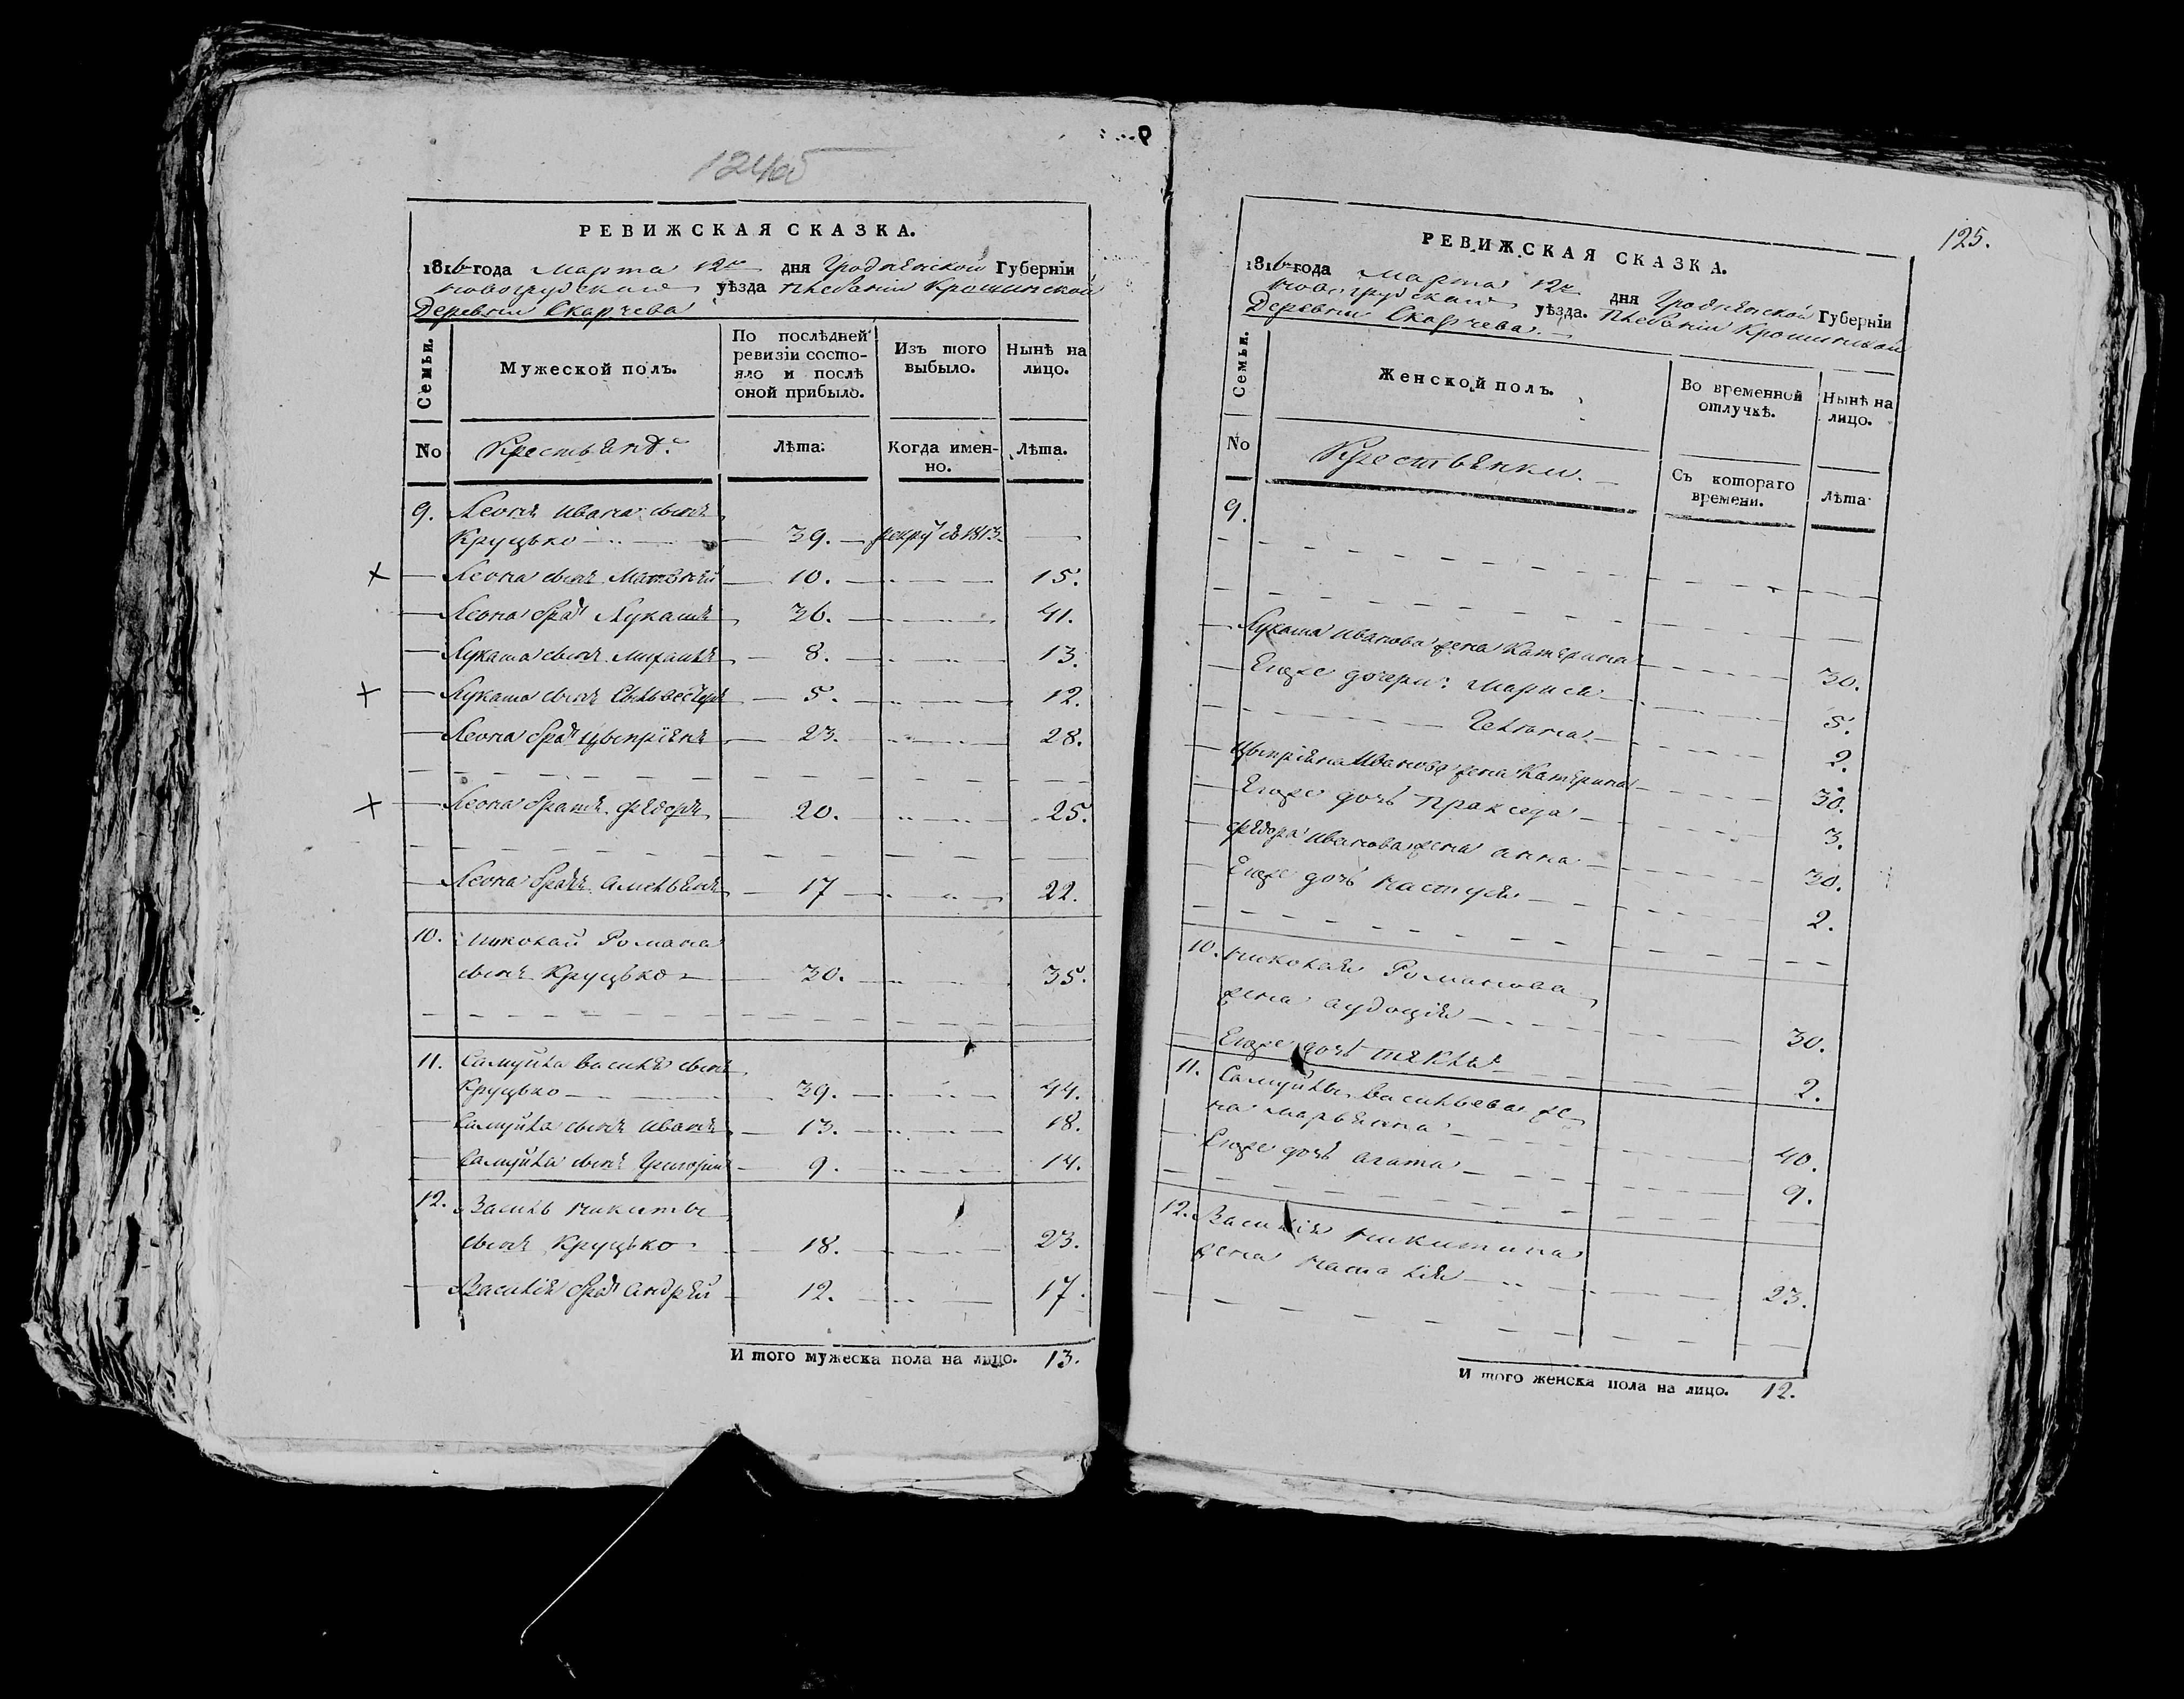 124об
РЕВИЖСКАЯ СКАЗКА.
1816 года Марта 12го дня Гроднѣнской Губерніи
Новогрудскаго уѣзда Плебаніи Крошинской
Деревни Скарчева
Семьи.
Мужеской полъ.
По послѣдней ревизіи состояло и послѣ оной прибыло.
Изъ того выбыло.
Нынѣ на лицо.
No
Крестьянѣ.
Лѣта.
Когда именно.
Лѣта.
9. Леонъ Ивана сынъ
Круцько 39. рекру: въ 1813
Леона сынъ Матвѣй 10. 15.
Леона братъ Лукашъ 36. 41.
Лукаша сынъ Михаилъ 8. 13.
Лукаша сынъ Сильвестеръ 5. 12.
Леона братъ Цыпріянъ 23. 28.
Леона братъ Фѣдоръ 20. 25.
Леона братъ 17 22.
10. Николай Романа
сынъ Круцько 30. 35.
11. Самуйла Василя сынъ
Круцько 39. 44.
Самуйла сынъ Иванъ 13. 18.
Самуйла сынъ Григорій 9. 14.
12. Василь Никиты
сынъ Круцько 18. 23.
Василія братъ Андрѣй 12. 17.
И того мужеска пола на лицо. 13.
125.
РЕВИЖСКАЯ СКАЗКА.
1816 года Марта 12го дня Гроднѣнской Губерніи
Новогрудскаго уѣзда. Плебаніи Крошинской
Деревни Скарчева.
Семьи.
Женской полъ.
Во временной отлучкѣ.
Нынѣ на лицо.
No
Крестьянки.
Съ котораго времени.
Лѣта.
9.
Лукаша Иванова жена Катерина 30.
Егоже дочери: Марися 5.
2.
Цыпріяна Иванова жена Катерина 30.
Егоже дочь Пракседа 3.
Фѣдора Иванова жена Анна 30.
Егоже дочь Настуся 2.
10. Николая Романова
жена Аудоція 30.
Егоже дочь Тякля 2.
11. Самуйлы Васильева же
на Марьянна 40.
Егоже дочь Агата 9.
12. Василія Никитина
жена Наталія 23.
И того женска пола на лицо. 12.